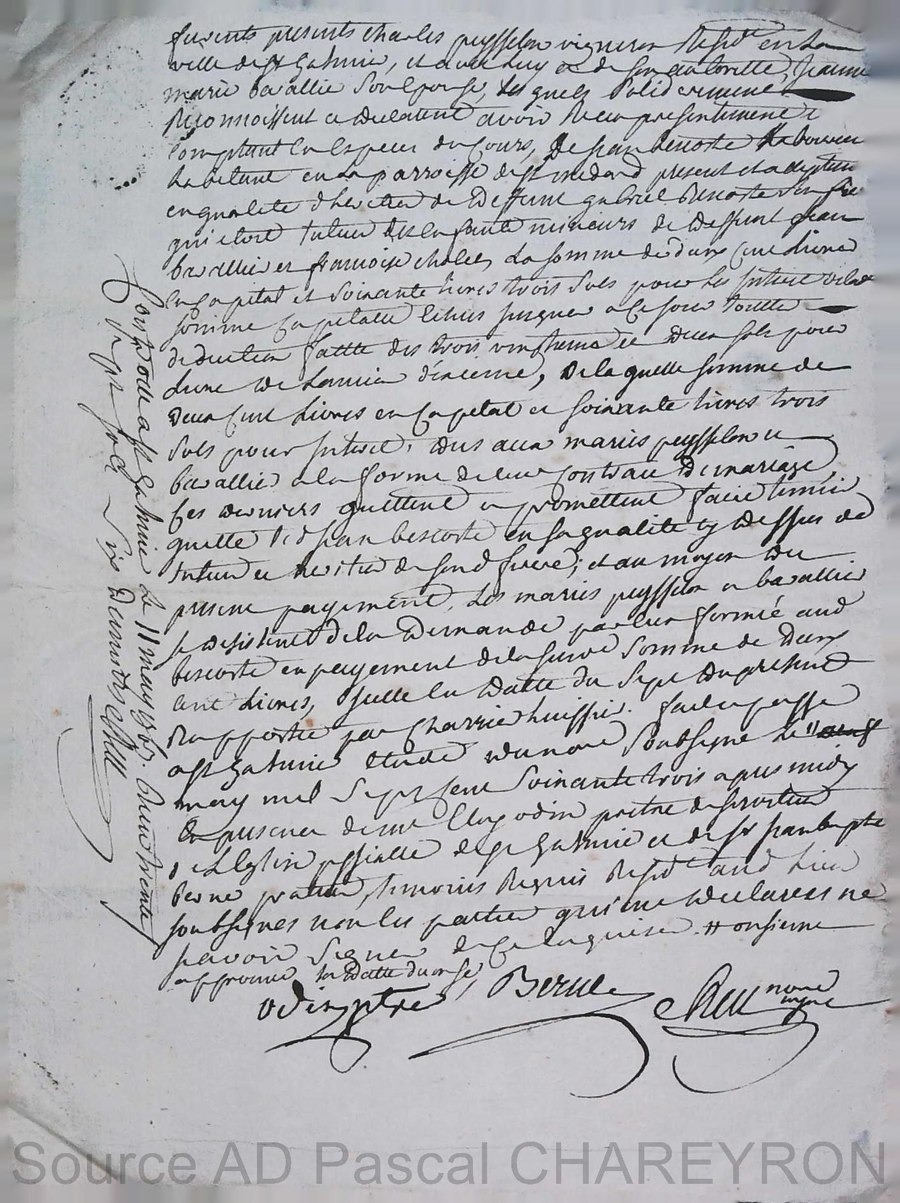 furents presents charles peysselon vigneron Resid^t en la
ville de s^t galmier, et avec luy et de son authorité, jeanne
marie bavallie son epouse, lesquels solidairement
Reconnoissent et declarent avoir Recu presentement et
comptant en especes du cours, de jean bescoste laboureur
habitant en la parroisse de s^t medard present et acceptant
en qualité d'heritier de deffunt gabriel bescoste son frere
qui etoit tuteur des enfants mineurs de deffunt jean
bavallie et francoise la somme de deux cent livres
en capital et soixante livres trois sols pour les interets de la^d
somme capitalle echus jusques a ce jour toutte
deduction faitte des trois vingtiemes et deux sols pour
livre de dixieme, de laquelle somme de
deux cent livres en capital et soixante livres trois
sols pour interets, dus aux maries peysselon et
bavallie a la forme de leur contrac de mariage,
ces derniers quittent et promettent faire tenir
quitte led jean bescoste en sa qualité cy dessus de
tuteur et heritier de sond frere; et au moyen du
present payement, les maries peysselon et bavallie
se desistent de la demande par eux formée aud
bescoste en payement de la susd somme de deux
cent livres, icelle en datte du sept du present
Rapportée par Charrier huissier. fait et passé
a s^t galmier etude du no^re soubsigné le 11
may mil sept cent soixante trois apres midy
en presence de m^re odin pretre desservant
l'eglise de s^t galmier et de s^r jean bapte
berne praticien, temoins Requis Resid^t aud lieu
soubsignes non les parties qui ont declarees ne
scavoir signer de ce enquises. onsieme
approuvé la datte du onse
odin ptre Berne no^re
Controllé a s^t galmier le 11 may 1763. Recu trente
sept sols six deniers
Source AD Pascal CHAREYRON